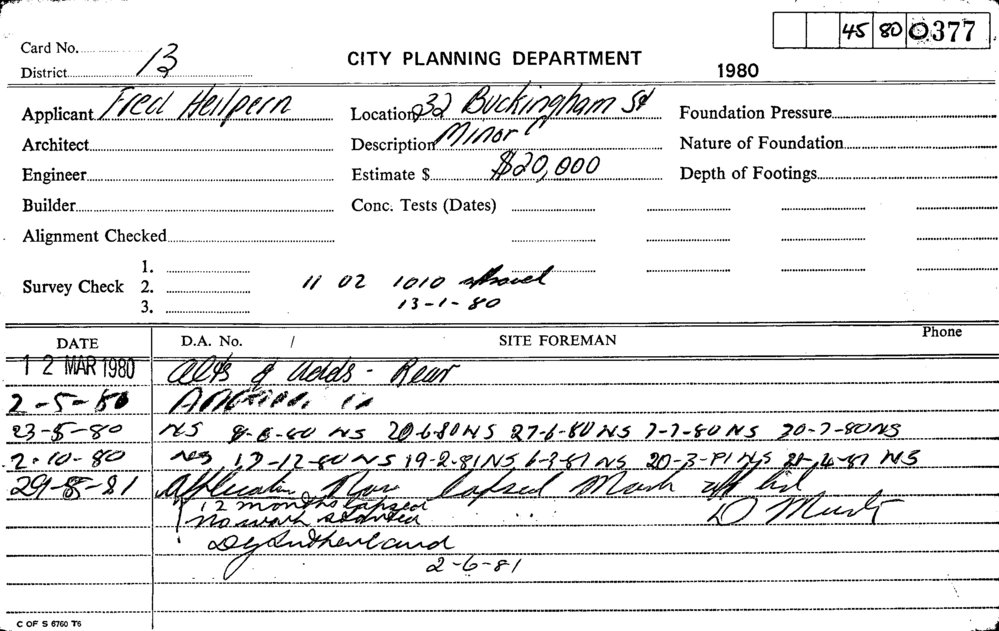 45 80 0377
Card No.
District 13
CITY PLANNING DEPARTMENT
1980
Applicant Fred Heilpern Location 232 Buckingham St Foundation Pressure
Architect Description Minor C Nature of Foundation
Engineer Estimate $ $20,000 Depth of Footings
Builder Conc. Tests (Dates)
Alignment Checked
Survey Check 1.
2. 11 02 1010
3. 13-1-80
DATE D.A. No. / SITE FOREMAN Phone
12 MAR 1980 Alts & Adds - Rear
2-5-80
23-5-80 NS 9-6-80 NS 20-6-80 NS 27-6-80 NS 7-7-80 NS 30-7-80 NS
2-10-80 NS 17-12-80 NS 19-2-81 NS 6-3-81 NS 20-3-81 NS NS
29-5-81 Application Now lapsed Mark off list
12 months lapsed
no work started D
Sutherland
2-6-81
C OF S 6760 T6